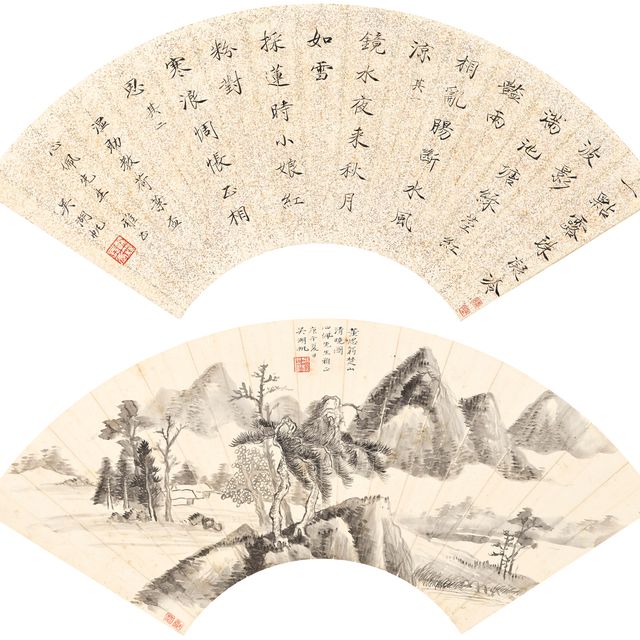 一點露珠凝冷
波影
滿池塘綠莖紅
豔兩
相亂腸斷水風
涼 其一
鏡水夜来秋月
如雪
採蓮時小娘紅
粉對
寒浪惆悵正相
思 其二
温助教荷葉盃
心佩先生雅正
吴湖帆
董思翁楚山
清曉圖
心佩先生雅正
庚午夏日
吴湖帆